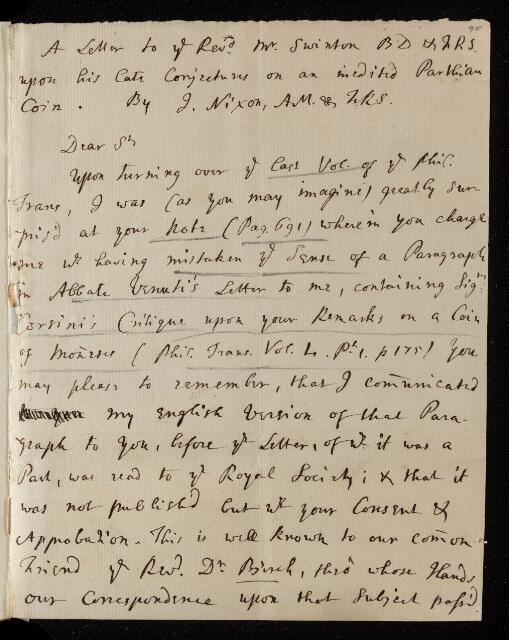 95
A Letter to ye Revd. Mr. Swinton BD & FRS.
upon his late Conjectures on an inedited Parthian
Coin. By J. Nixon, AM. & FRS.
Dear Sr.
Upon turning over ye last Vol. of ye Phil.
Trans, I was (as you may imagine) greatly sur-
pris'd at your Note (Pag. 691) wherein you charge
me wth having mistaken ye Sense of a Paragraph
in Abbate Venuti's Letter to me, containing Sigr.
Corsini's Critique upon your Remarks on a Coin
of Moneses (Phil. Trans. Vol. L. Pt. 1. p 175) You
may please to remember, that I com̄unicated
my English Version of that Para-
graph to you, before ye Letter, of wch. it was a
Part, was read to ye Royal Society; & that it
was not publish'd but wth your Consent &
Approbation. This is well known to our com̄on
Friend ye Revd. Dr. Birch, thro' whose Hands
our Correspondence upon that Subject pass'd